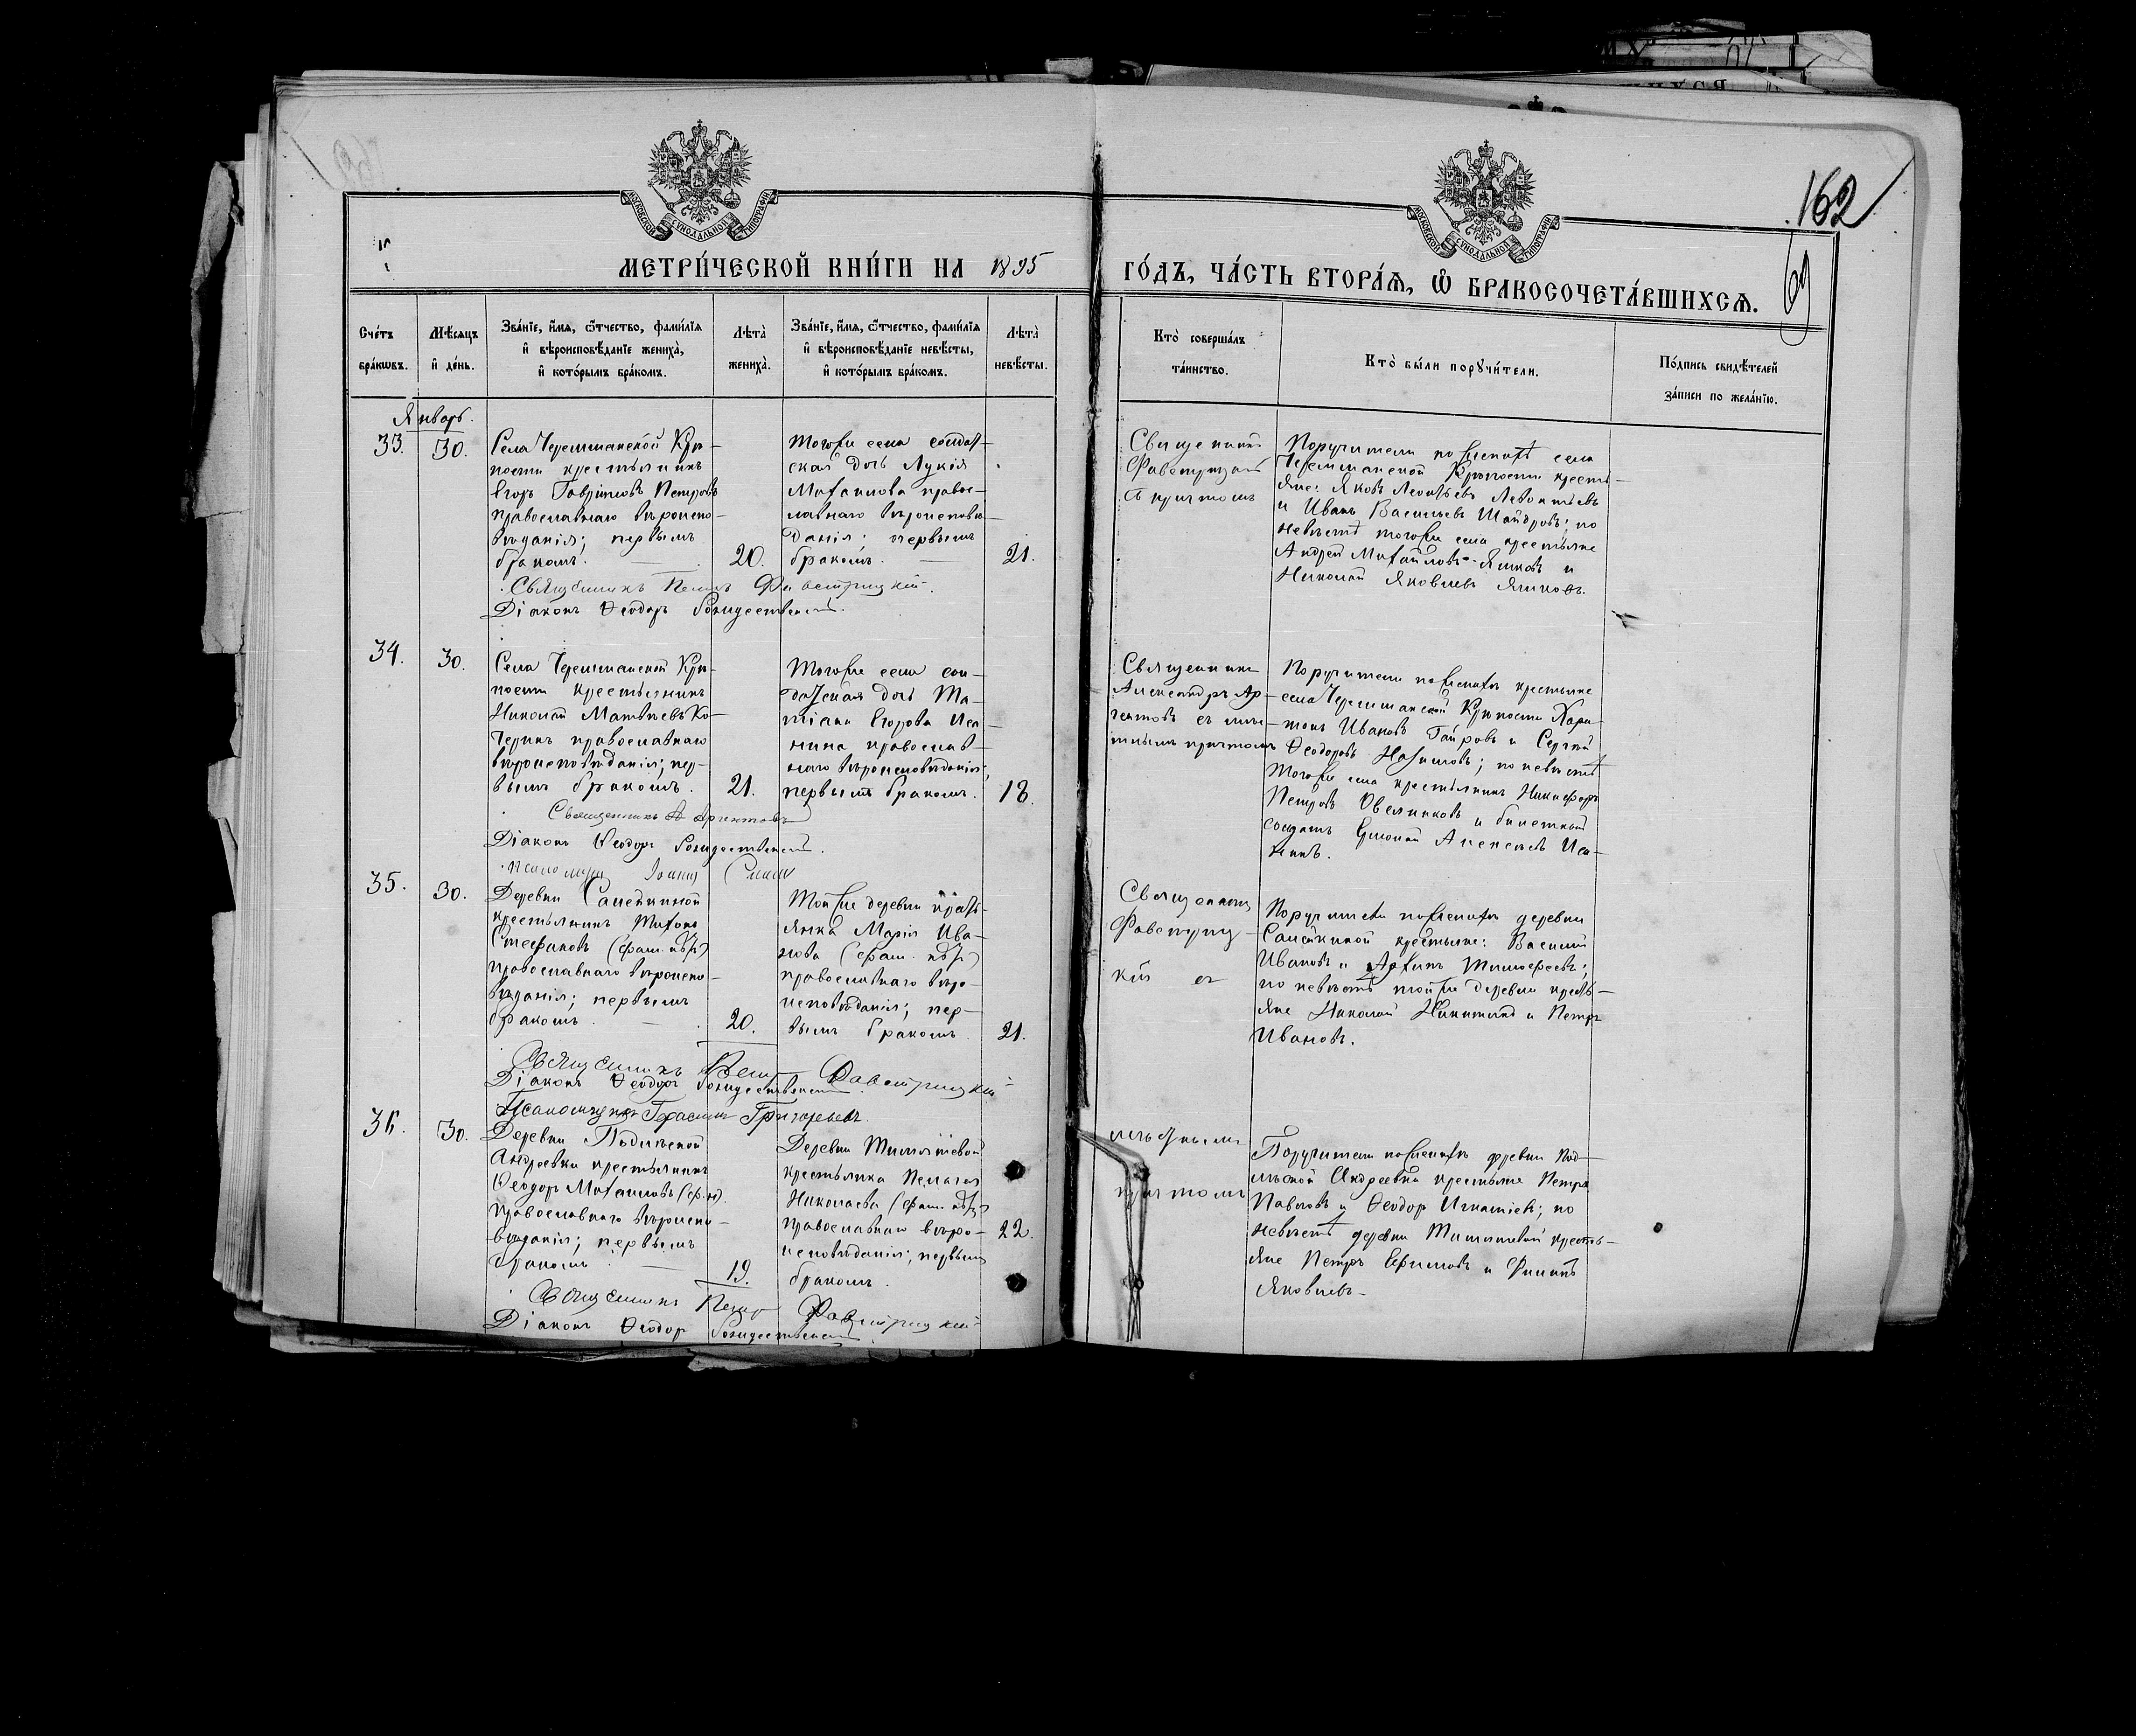 162
69
МОСКОВСКОЙ СУНОДАЛЬНОЙ ТИПОГРАФІИ
МОСКОВСКОЙ СУНОДАЛЬНОЙ ТИПОГРАФІИ
МЕТРИ́ЧЕСКОЙ КНИ́ГИ НА 1895
ГО́ДЪ, ЧА́СТЬ ВТОРА́Ѧ, Ѽ БРАКОСОЧЕТА́ВШИХСѦ.
Сче́тъ
бра́кѡвъ.
Мѣ́сѧцъ
и҆ де́нь.
Зва́нїе, и҆́мѧ, ѻ҆́тчество, фами́лїѧ
и҆ вѣроисповѣ́данїе жениха̀,
и҆ кото́рымъ бра́комъ.
Лѣта̀
жениха̀.
Зва́нїе, и҆́мѧ, ѻ҆́тчество, фами́лїѧ
и҆ вѣроисповѣ́данїе невѣ́сты,
и҆ кото́рымъ бра́комъ.
Лѣта̀
невѣ́сты.
Кто̀ соверша́лъ
та́инство.
Кто̀ бы́ли порꙋчи́тели.
По́дпись свидѣ́телей
за́писи по жела́нїю.
Январь.
33.
30.
Села Черемшанской Крѣ-
пости крестьянинъ
Егоръ Гавриловъ Петровъ
православнаго вѣроиспо-
вѣданія; первымъ
бракомъ.
20.
Тогоже села солдат-
ская дочь Лукія
Михаилова правос-
лавнаго вѣроисповѣ-
данія; первымъ
бракомъ.
21.
Священникъ
Фавстрицкій
съ причтомъ
Поручители по женихѣ села
Черемшанской Крѣпости кресть-
яне: Яковъ Леонтьевъ Левонтьевъ
и Иванъ Васильевъ Шайдровъ; по
невѣстѣ тогоже села крестьяне
Андрей Михайловъ Яшковъ и
Николай Яковлевъ Яшковъ.
Священникъ Петръ Фавстрицкій.
Діаконъ Ѳеодоръ Рождественскій.
34.
30.
Села Черемшанской Крѣ-
пости крестьянинъ
Николай Матвѣевъ Ко-
черинъ православнаго
вѣроисповѣданія; пер-
вымъ бракомъ.
21.
Тогоже села сол-
датская дочь Та-
тіана Егорова Иса-
нина православ-
наго вѣроисповѣданія;
первымъ бракомъ.
18.
Священникъ
Александръ Ар-
гентовъ съ мѣс-
тнымъ причтомъ
Поручители по женихѣ крестьяне
села Черемшанской Крѣпости Хари-
тонъ Ивановъ Гайровъ и Сергѣй
Ѳеодоровъ Назимовъ; по невѣстѣ
тогоже села крестьянинъ Никифоръ
Петровъ Овсянниковъ и билетный
солдатъ Алексѣевъ Иса-
нинъ.
Священникъ А Аргентовъ
Діаконъ Ѳеодоръ Рождественскій.
псаломщикъ Іоаннъ
35.
30.
Деревни Самейкиной
крестьянинъ Тихонъ
Стефановъ (фам. нѣт)
православнаго вѣроиспо-
вѣданія; первымъ
бракомъ.
20.
Тойже деревни кресть-
янка Марія Ива-
нова (фам. нѣт)
православнаго вѣро-
исповѣданія; пер-
вымъ бракомъ.
21.
Священникъ
Фавстриц-
кій съ
Поручители по женихѣ деревни
Самейкиной крестьяне: Василій
Ивановъ и Тимофеевъ;
по невѣстѣ тойже деревни кресть-
яне Николай Никитинъ и Петръ
Ивановъ.
Священникъ Петр Фавстрицкій
Діаконъ Ѳеодоръ Рождественскій.
Псаломщикъ Герасимъ Григорьевъ.
36.
30.
Деревни Подлѣсной
Андреевки крестьянинъ
Ѳеодоръ Михаиловъ (ф. н.)
православнаго вѣроиспо-
вѣданія; первымъ
бракомъ.
19.
Деревни
крестьянка Пелагея
Николаева (фам. нѣт)
православнаго вѣро-
исповѣданія; первымъ
бракомъ.
22.
мѣстнымъ
причтомъ
Поручители по женихѣ деревни Под-
лѣсной Андреевки крестьяне Петръ
Павловъ и Ѳеодор Игнатіевъ; по
невѣстѣ деревни кресть-
яне Петръ Ефимовъ и Филипъ
Яковлевъ.
Священникъ Петр Фавстрицкій
Діаконъ Ѳеодор Рождественскій